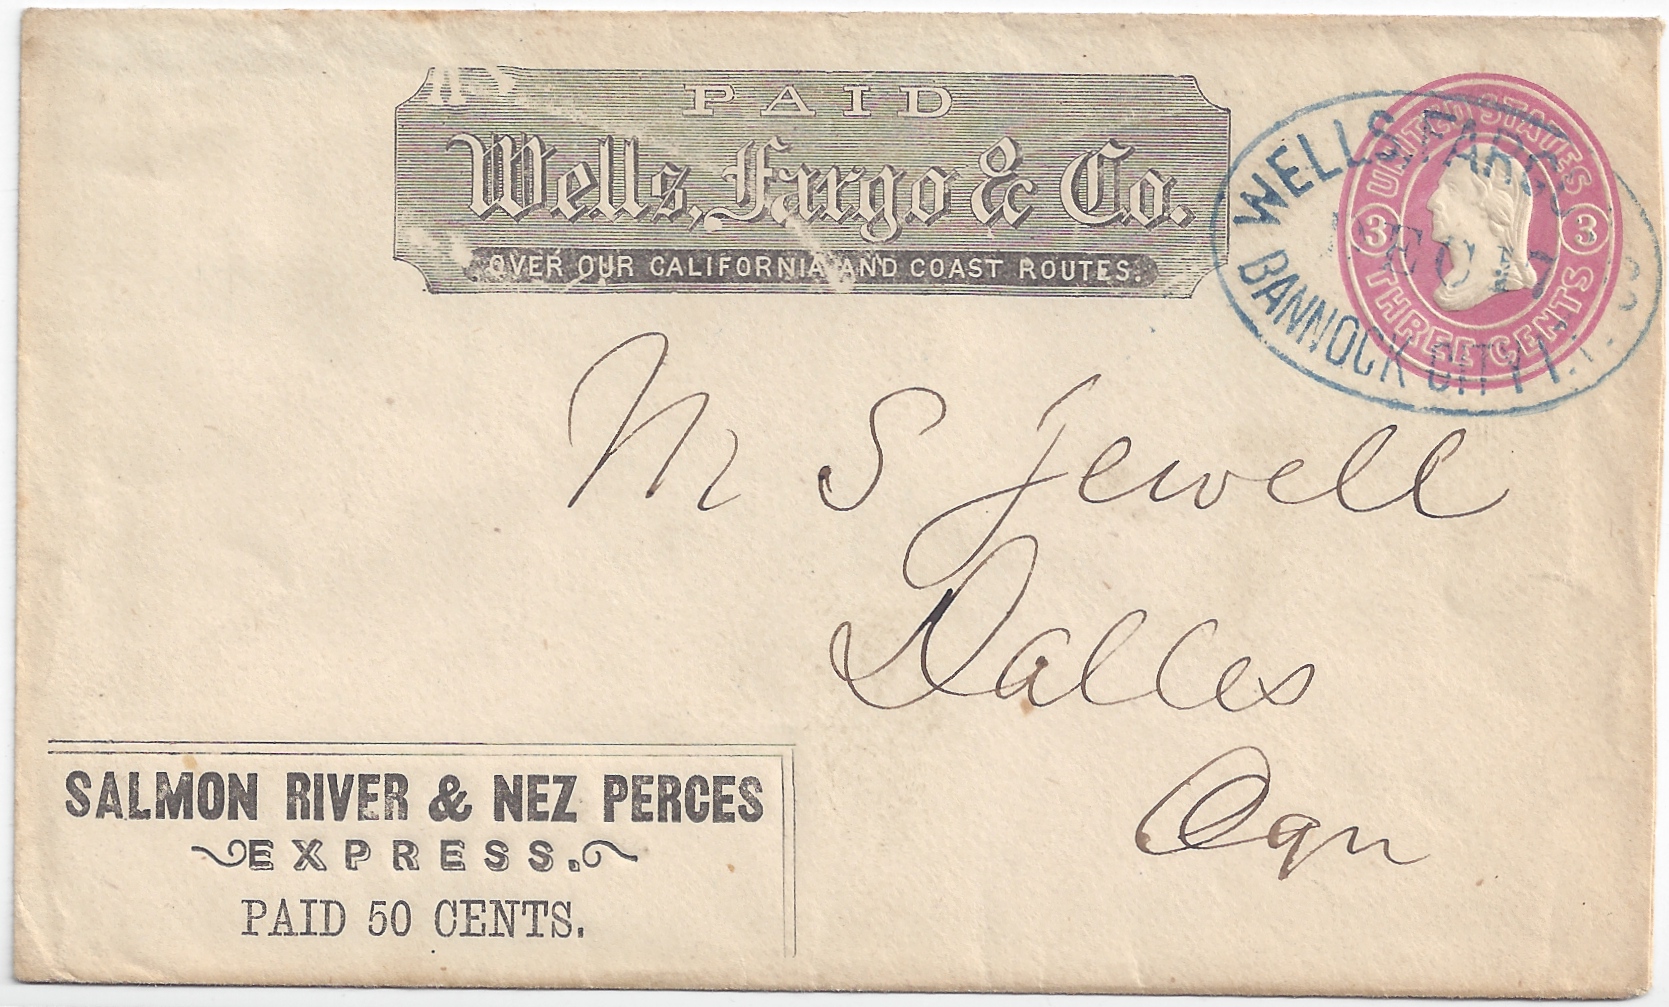 PAID
Wells, Fargo & Co.
OVER OUR CALIFORNIA AND COAST ROUTES.
UNITED STATES
3 3
THREE CENTS
WELLS, FARGO
DEC 17
BANNOCK CITY I.T.
M S Jewell
Dalles
Ogn
SALMON RIVER & NEZ PERCES
EXPRESS.
PAID 50 CENTS.